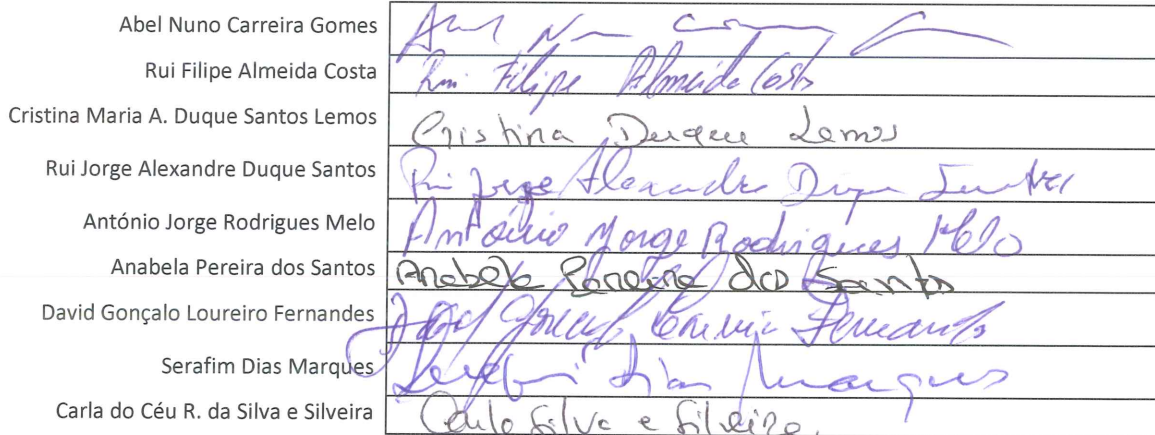 Abel Nuno Carreira Gomes
Rui Filipe Almeida Costa Rui Filipe Almeida Costa
Cristina Maria A. Duque Santos Lemos Cristina Duque Lemos
Rui Jorge Alexandre Duque Santos Rui Jorge Alexandre Duque Santos
António Jorge Rodrigues Melo António Jorge Rodrigues Melo
Anabela Pereira dos Santos Anabela Pereira dos Santos
David Gonçalo Loureiro Fernandes David Gonçalo Loureiro Fernandes
Serafim Dias Marques Serafim Dias Marques
Carla do Céu R. da Silva e Silveira Carla Silva e Silveira